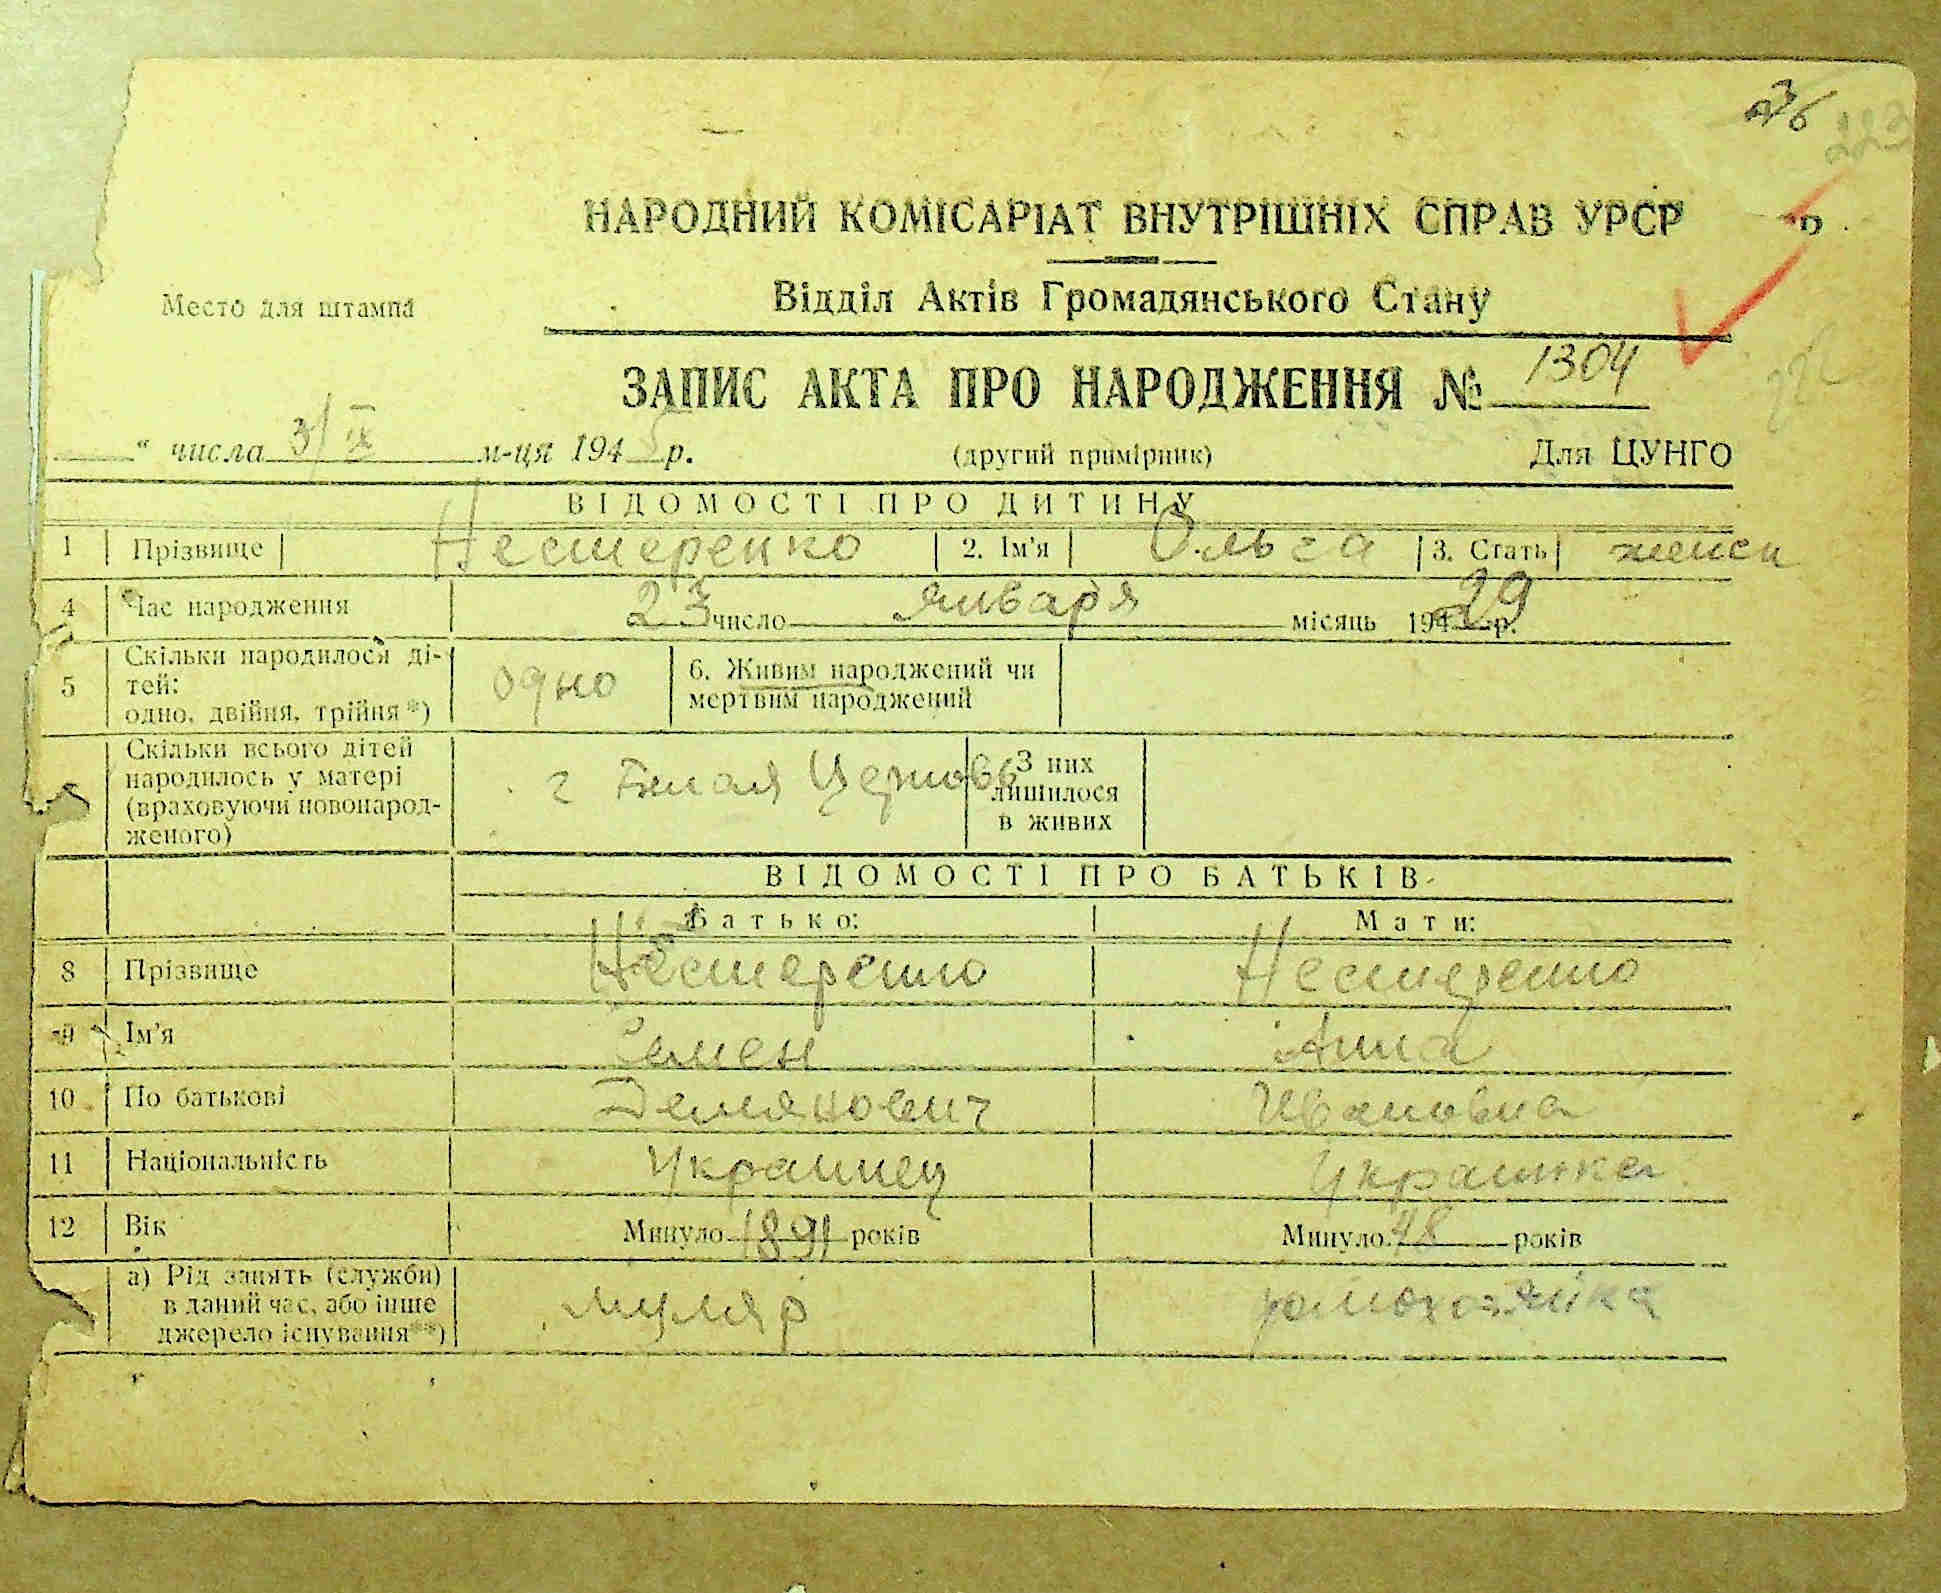 23/6
223
НАРОДНИЙ КОМІСАРІАТ ВНУТРІШНІХ СПРАВ УРСР
Место для штампа
Відділ Актів Громадянського Стану
ЗАПИС АКТА ПРО НАРОДЖЕННЯ № 1304
“ числа 3/IX м-ця 1945 р. (другий примірник) Для ЦУНГО
ВІДОМОСТІ ПРО ДИТИНУ
1 Прізвище Нестеренко 2. Ім'я Ольга 3. Стать женск
4 Час народження 23 число января місяць 194 29 р.
5 Скільки народилося ді-
тей:
одно, двійня, трійня*) одно 6. Живим народжений чи
мертвим народжений
Скільки всього дітей
народилось у матері
(враховуючи новонарод-
женого) г Белая Церковь З них
лишилося
в живих
ВІДОМОСТІ ПРО БАТЬКІВ
Батько: Мати:
8 Прізвище Нестеренко Нестеренко
9 Ім'я Семен Анна
10 По батькові Демянович Ивановна
11 Національність Украинец Украинка
12 Вік Минуло 1891 років Минуло 48 років
а) Рід занять (служби)
в даний час, або інше
джерело існування**) муляр домохозяйка